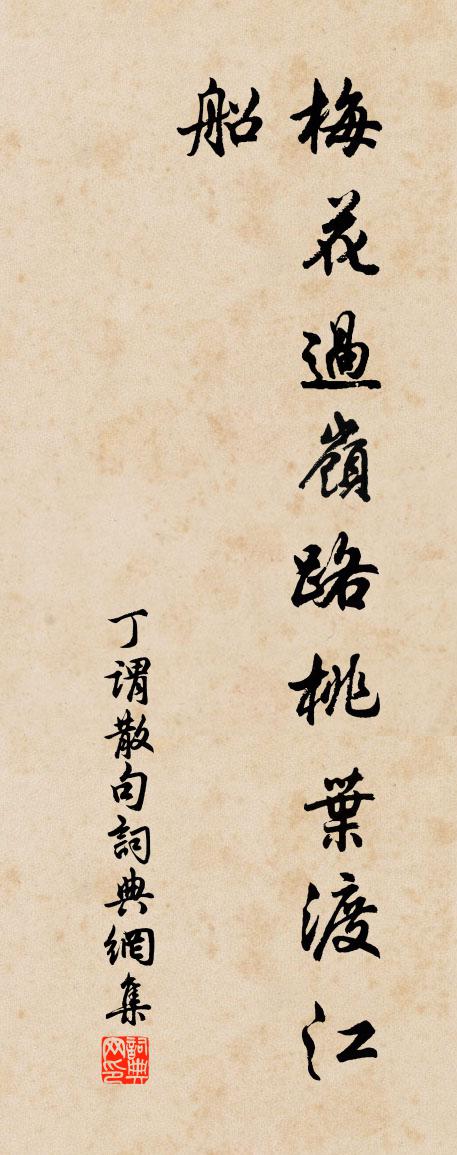 梅花過嶺路桃葉渡江
船
丁謂散句詞典網集
詞典网印